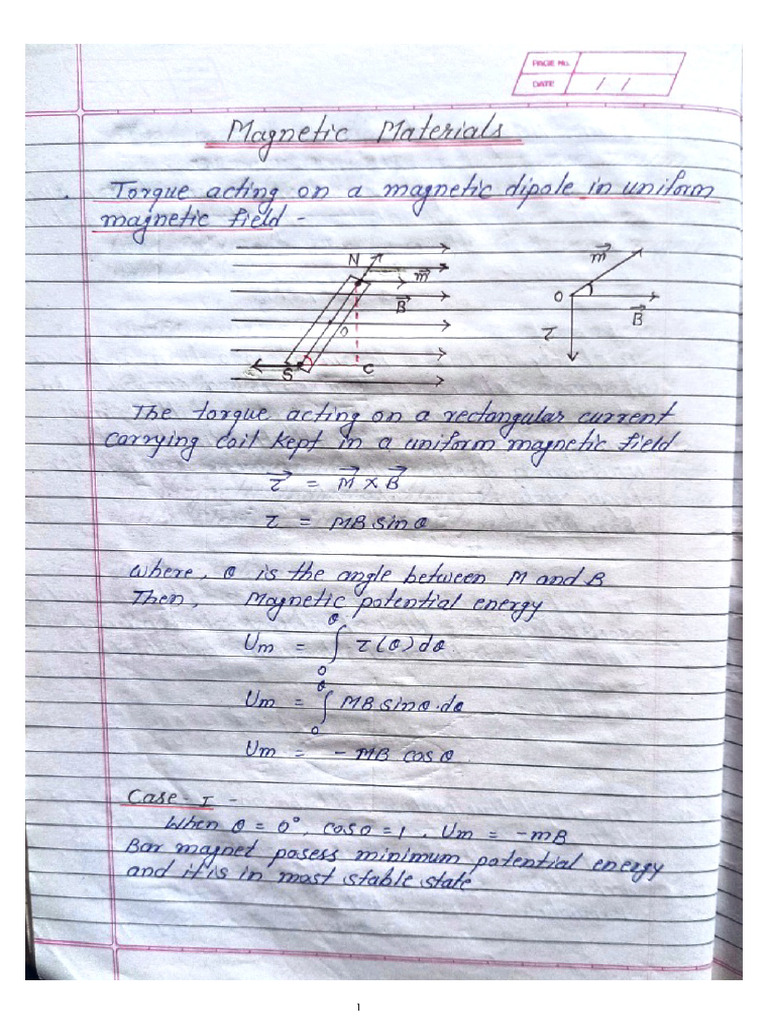 PAGE No.
DATE / /
Magnetic Materials
Torque acting on a magnetic dipole in uniform
magnetic field -
N
m⃗
B⃗
O
S
C
m⃗
O
B⃗
τ
The torque acting on a rectangular current
carrying coil kept in a uniform magnetic field
τ⃗ = M⃗ × B⃗
τ = MB sin θ
where, θ is the angle between M and B
Then, Magnetic potential energy
Um = ∫₀^θ τ(θ) dθ
Um = ∫₀^θ MB sinθ·dθ
Um = - MB cos θ
Case - I -
When θ = 0°, cos0 = 1, Um = -mB
Bar magnet posess minimum potential energy
and it is in most stable state
1